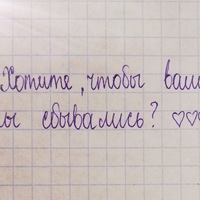 Хотите, чтобы ваш
ы сбывались? ♡♡♡